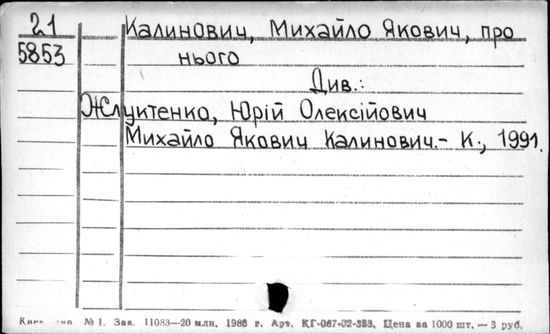 21
5853
Калинович, Михайло Якович, про
нього
Див.:
Жлуктенко, Юрій Олексійович
Михайло Якович Калинович.- К., 1991.
№ 1. Зак. 11083—20 млн. 1986 г. Арт. КГ-067-02-353. Цена за 1000 шт.— 3 руб.